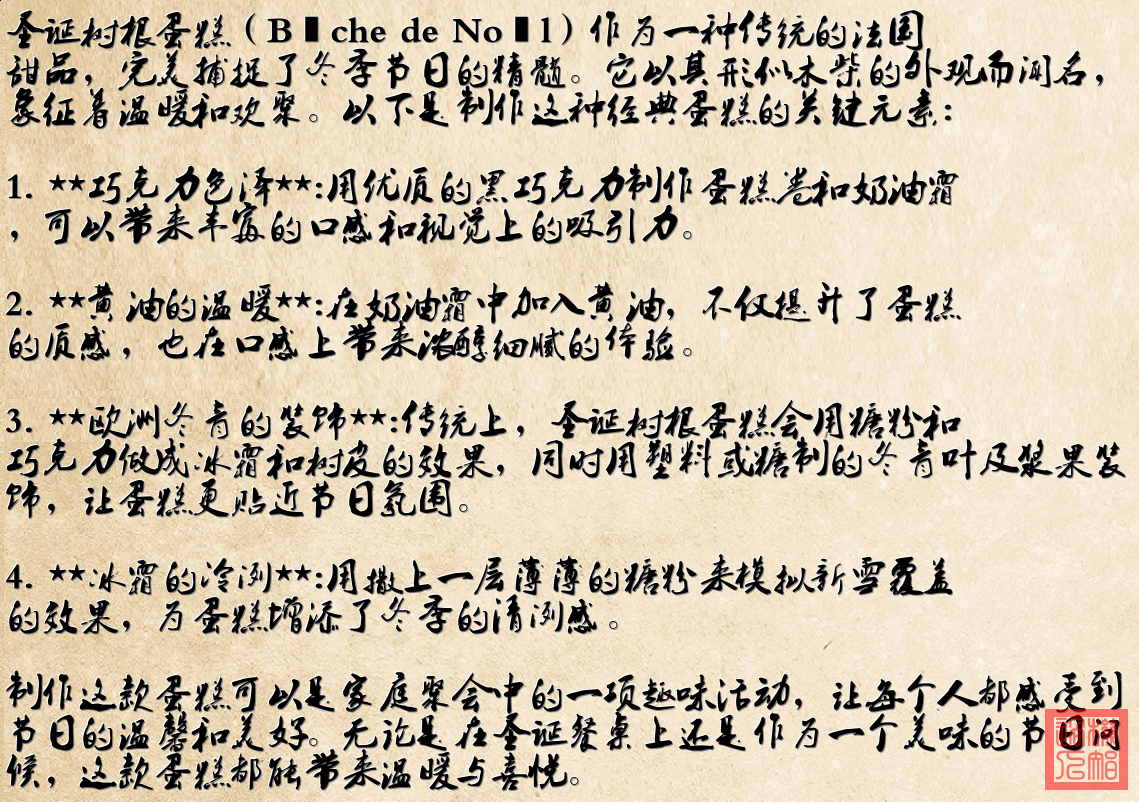 圣诞树根蛋糕（B▮che de No▮l）作为一种传统的法国
甜品，完美捕捉了冬季节日的精髓。它以其形似木柴的外观而闻名，
象征着温暖和欢聚。以下是制作这种经典蛋糕的关键元素：
1. **巧克力色泽**:用优质的黑巧克力制作蛋糕卷和奶油霜
，可以带来丰富的口感和视觉上的吸引力。
2. **黄油的温暖**:在奶油霜中加入黄油，不仅提升了蛋糕
的质感，也在口感上带来浓醇细腻的体验。
3. **欧洲冬青的装饰**:传统上，圣诞树根蛋糕会用糖粉和
巧克力做成冰霜和树皮的效果，同时用塑料或糖制的冬青叶及浆果装
饰，让蛋糕更贴近节日氛围。
4. **冰霜的冷冽**:用撒上一层薄薄的糖粉来模拟新雪覆盖
的效果，为蛋糕增添了冬季的清冽感。
制作这款蛋糕可以是家庭聚会中的一项趣味活动，让每个人都感受到
节日的温馨和美好。无论是在圣诞餐桌上还是作为一个美味的节日问
候，这款蛋糕都能带来温暖与喜悦。